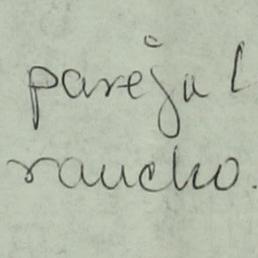 pareja l
rancho.